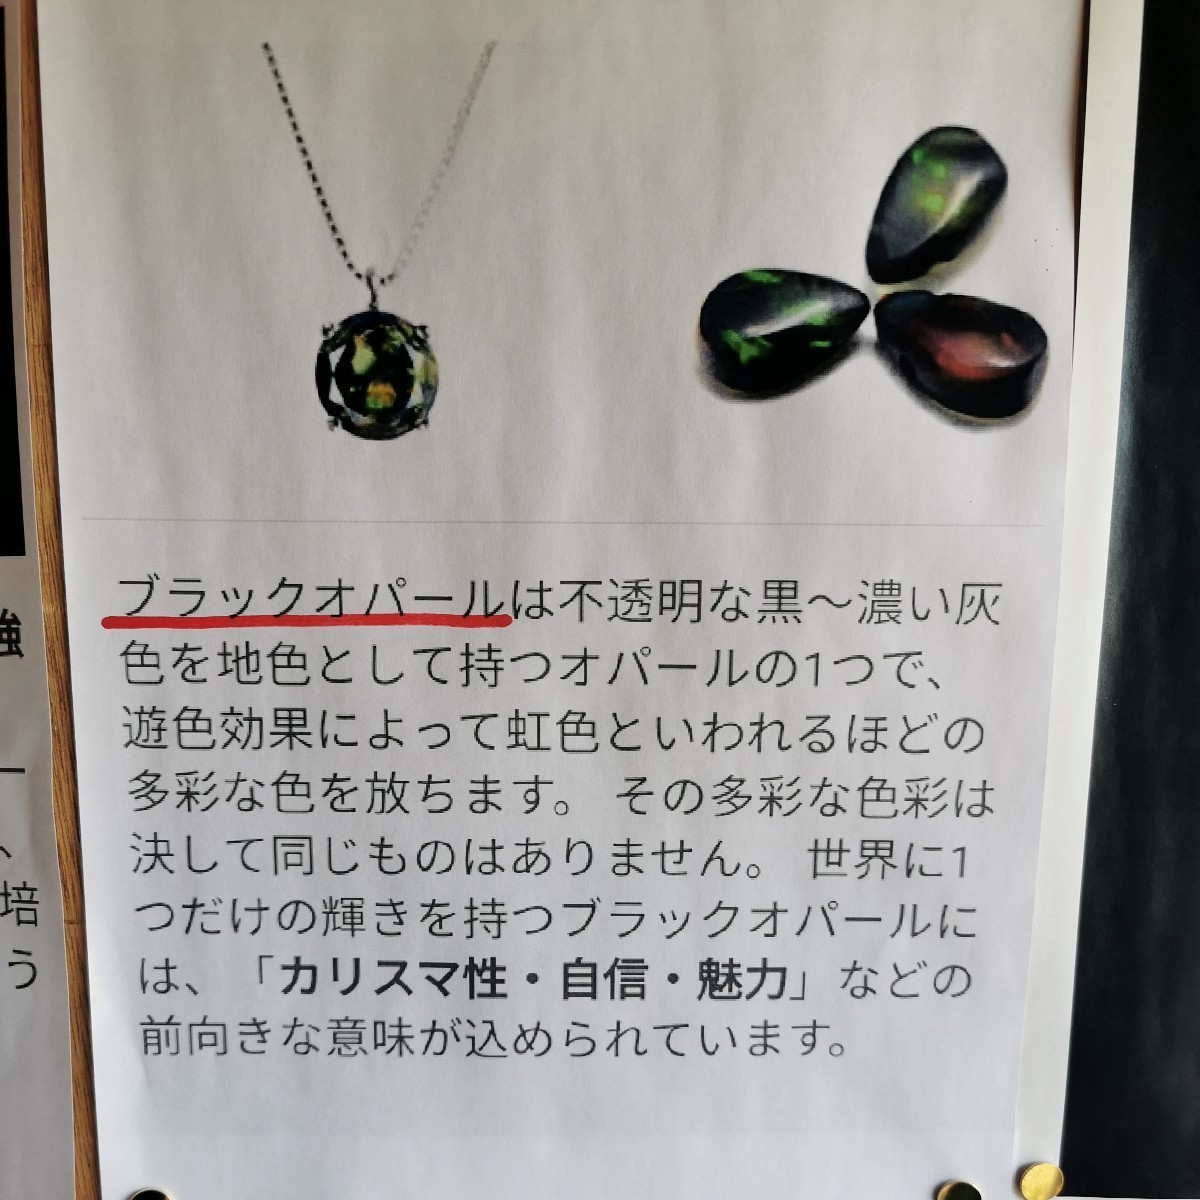 ブラックオパールは不透明な黒〜濃い灰
色を地色として持つオパールの1つで、
遊色効果によって虹色といわれるほどの
多彩な色を放ちます。 その多彩な色彩は
決して同じものはありません。 世界に1
つだけの輝きを持つブラックオパールに
は、「カリスマ性・自信・魅力」などの
前向きな意味が込められています。
強
ー
、
培
う